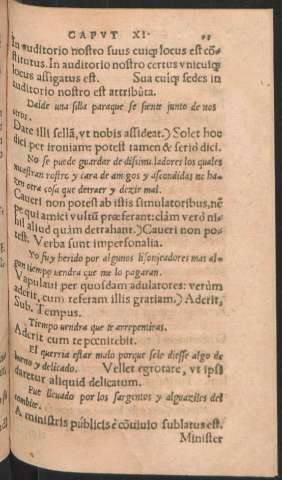 CAPVT XI.
In auditorio nostro suus cuiq; locus est cõ-
stitutus. In auditorio nostro certus vnicuiq;
locus assigatus est. Sua cuiq; sedes in
auditorio nostro est attribùta.
Dalde una silla paraque se siente junto de nos
otros.
Date illi sellã, vt nobis assideat.) Solet hoc
dici per ironiam: potest tamen & seriò dici.
No se puede guardar de disimuladores los quales
muestran rostro y cara de amigos y ascondidas no ha-
zen otra cosa que detraer y dezir mal.
Caueri non potest ab istis simulatoribus, nẽ
pe qui amici vultũ præferant: clàm verò ni-
hil aliud quàm detrahant.) Caueri non po-
test. Verba sunt impersonalia.
Yo fuy herido por algunos lisonjeadores mas al-
gun tiempo uendra que me lo pagaran.
Vapulaui per quosdam adulatores: verùm
aderit, cum referam illis gratiam.) Aderit,
Sub. Tempus.
Tiempo uendra que te arrepentiras.
Aderit cum te pœnitebit.
El querria estar malo porque sele diesse algo de
bueno y delicado. Vellet egrotare, vt ipsi
daretur aliquid delicatum.
Fue lleuado por los sargentos y alguaziles del
combite.
A ministris públicis è cõuiuio sublatus est.
Minister